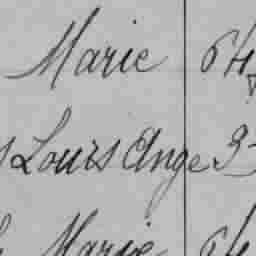 Marie 64
Louis Ange 3
Marie 64